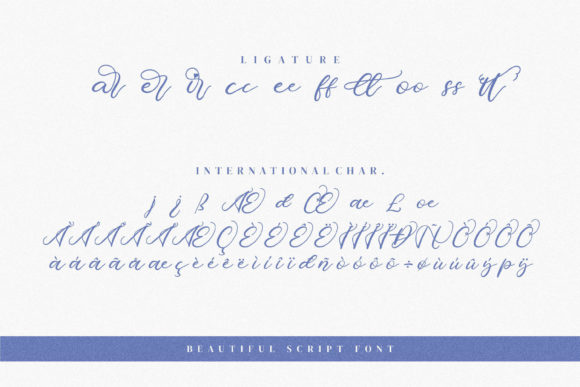 LIGATURE
ar er ir cc ee ff tt oo ss
INTERNATIONAL CHAR.
¡ ¿ ß Æ đ Œ æ Ł œ
À Á Â Ã Ä Å Æ Ç È É Ê Ë Ì Í Î Ï Đ Ñ Ò Ó Ô Õ
à á â ã ä å æ ç è é ê ë ì í î ï đ ñ ò ó ô õ ÷ ø ù ú û ý þ ÿ
BEAUTIFUL SCRIPT FONT